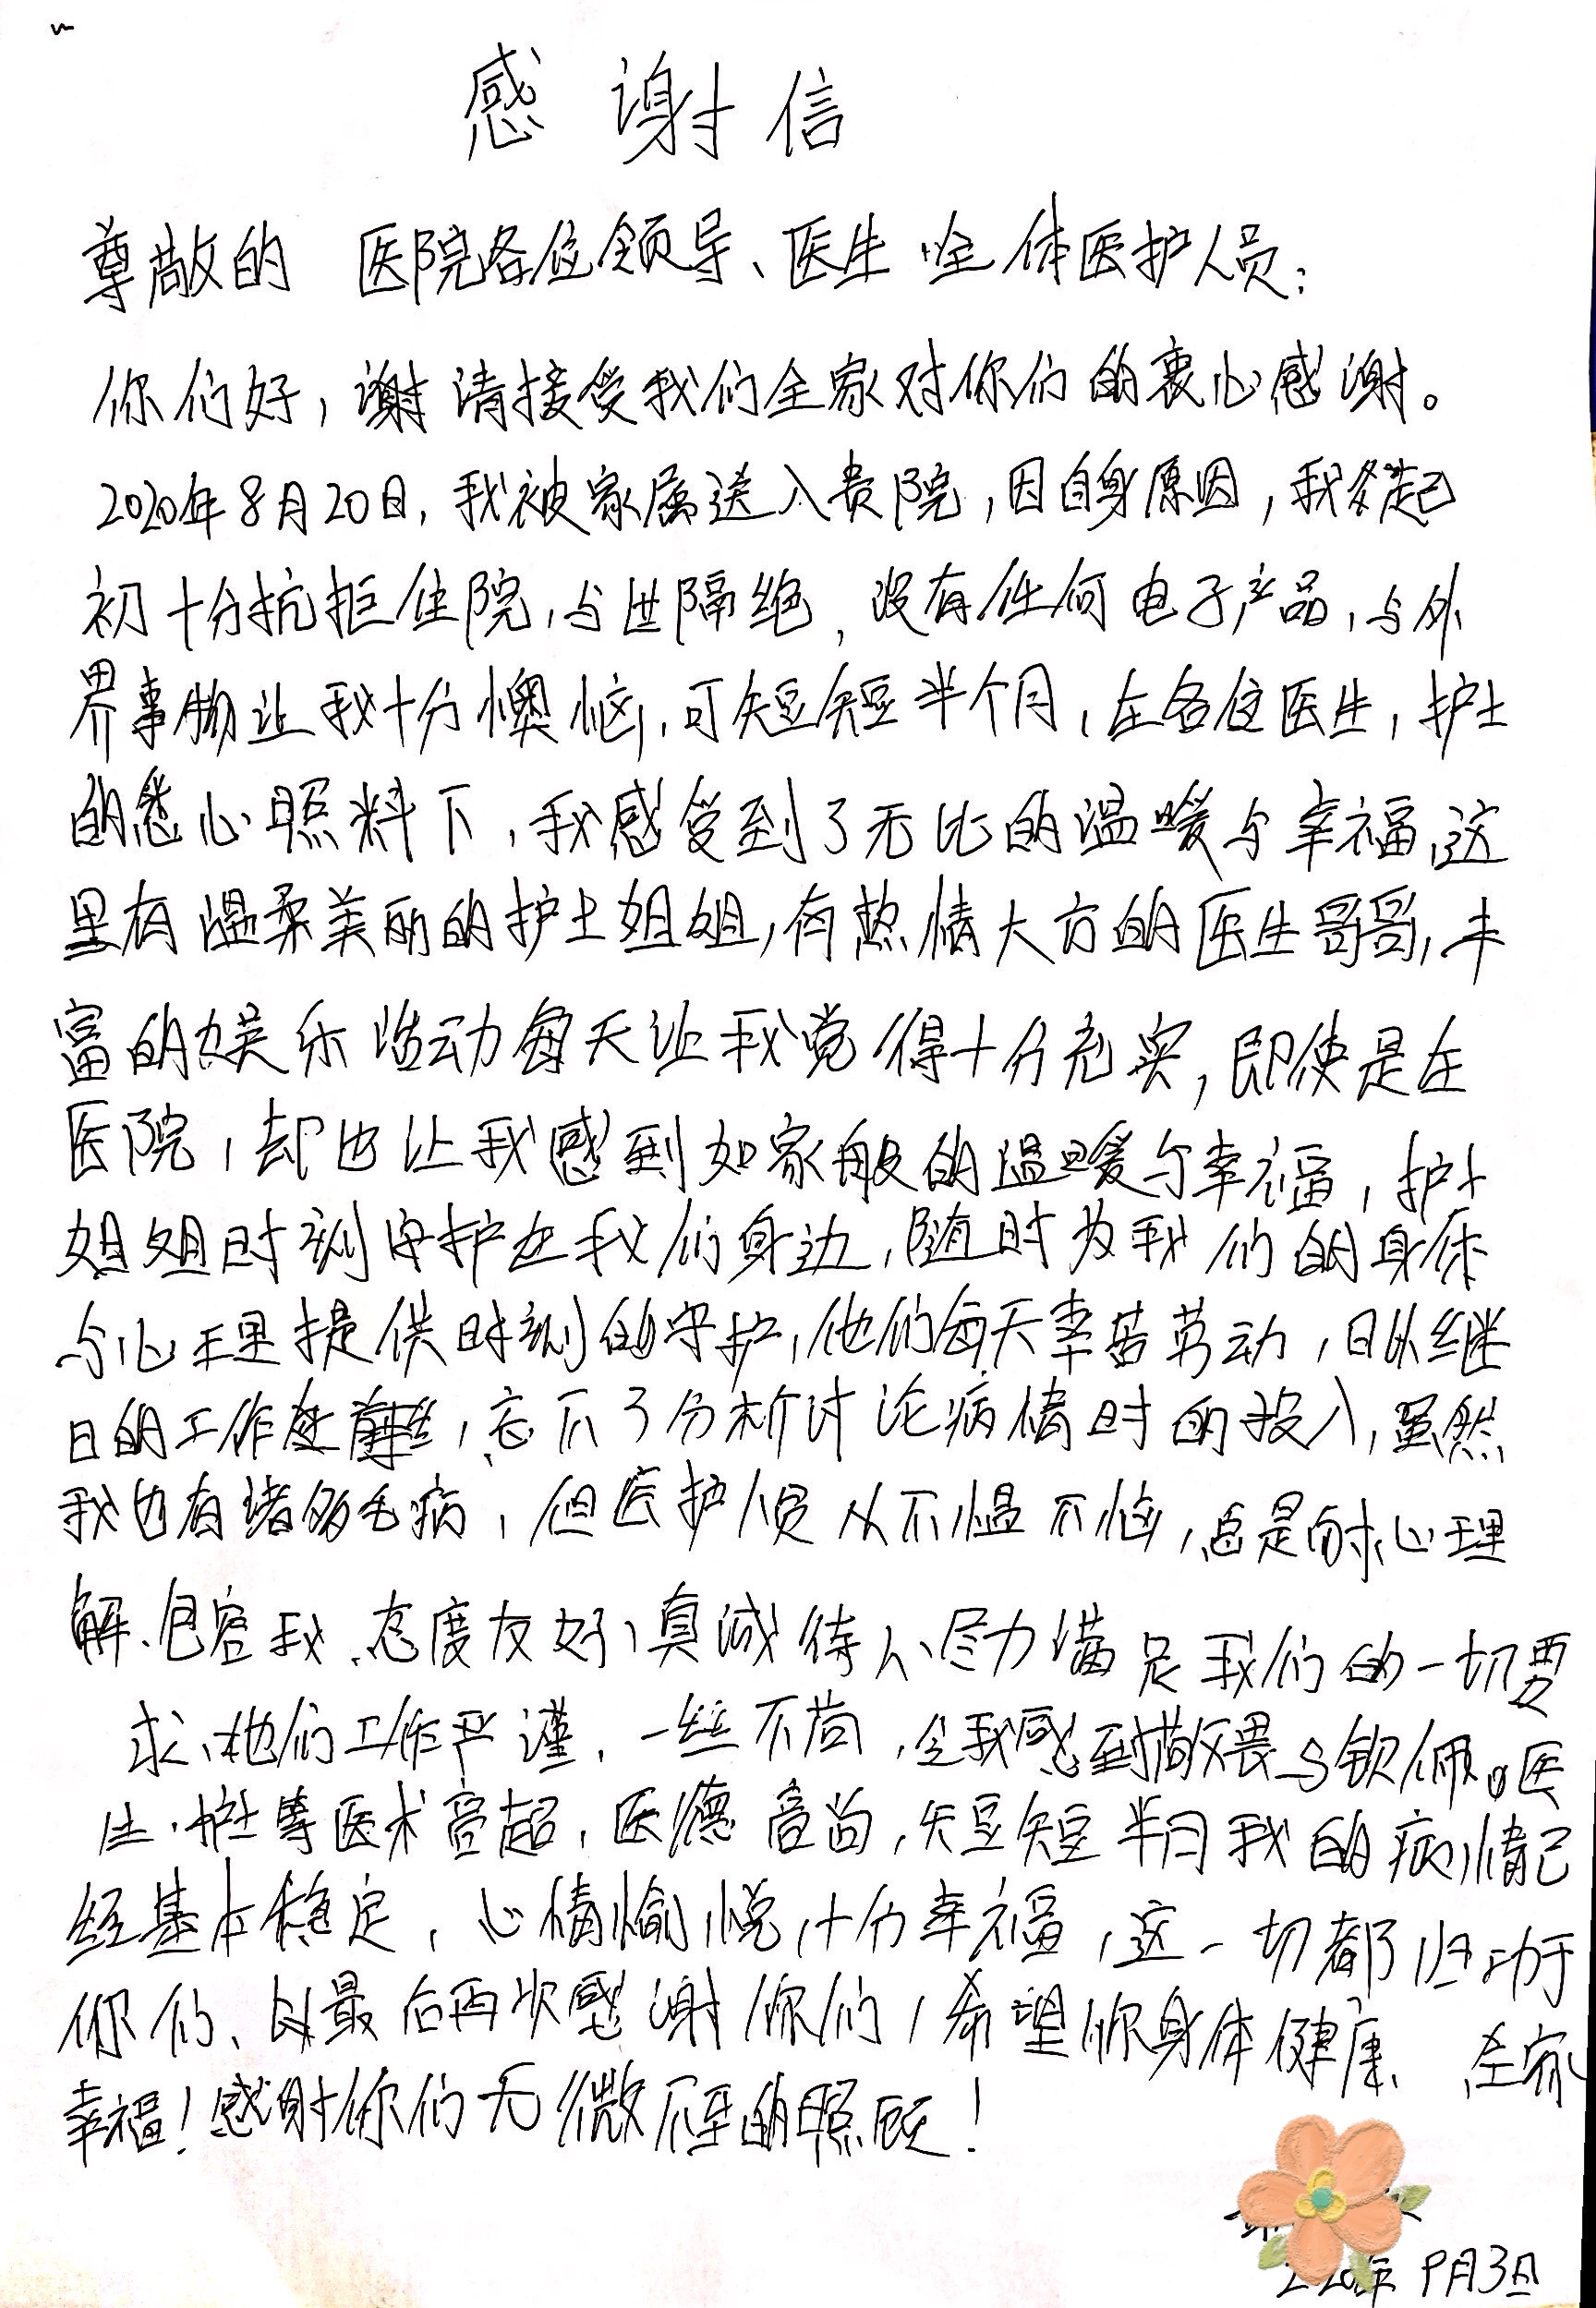 感谢信
尊敬的 医院各位领导、医生、全体医护人员:
你们好,谢请接受我们全家对你们的衷心感谢。
2020年8月20日,我被家属送入贵院,因自身原因,我起
初十分抗拒住院,与世隔绝,没有任何电子产品,与外
界事物让我十分懊恼,可短短半个月,在各位医生,护士
的悉心照料下,我感受到了无比的温暖与幸福,这
里有温柔美丽的护士姐姐,有热情大方的医生哥哥,丰
富的娱乐活动每天让我觉得十分充实,即使是在
医院,却也让我感到如家般的温暖与幸福,护士
姐姐时刻守护在我们身边,随时为我们的身体
与心理提供时刻的守护,他们每天辛苦劳动,日以继
日的工作,忘不了分析讨论病情时的投入,虽然
我也有诸多毛病,但医护人员从不愠不恼,总是耐心理
解、包容我、态度友好、真诚待人、尽力满足我们的一切要
求、他们工作严谨,一丝不苟,令我感到敬畏与钦佩。医
生、护士等医术高超,医德高尚,短短半月我的病情已
经基本稳定,心情愉悦,十分幸福,这一切都归功于
你们、最后再次感谢你们,希望你身体健康、全家
幸福!感谢你们无微不至的照顾!
2020年9月3日